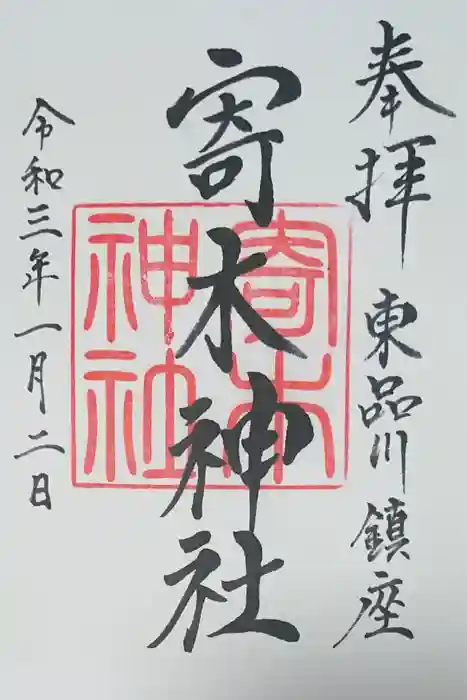 奉拝 東品川鎮座
寄木神社
寄木神社
令和三年一月二日